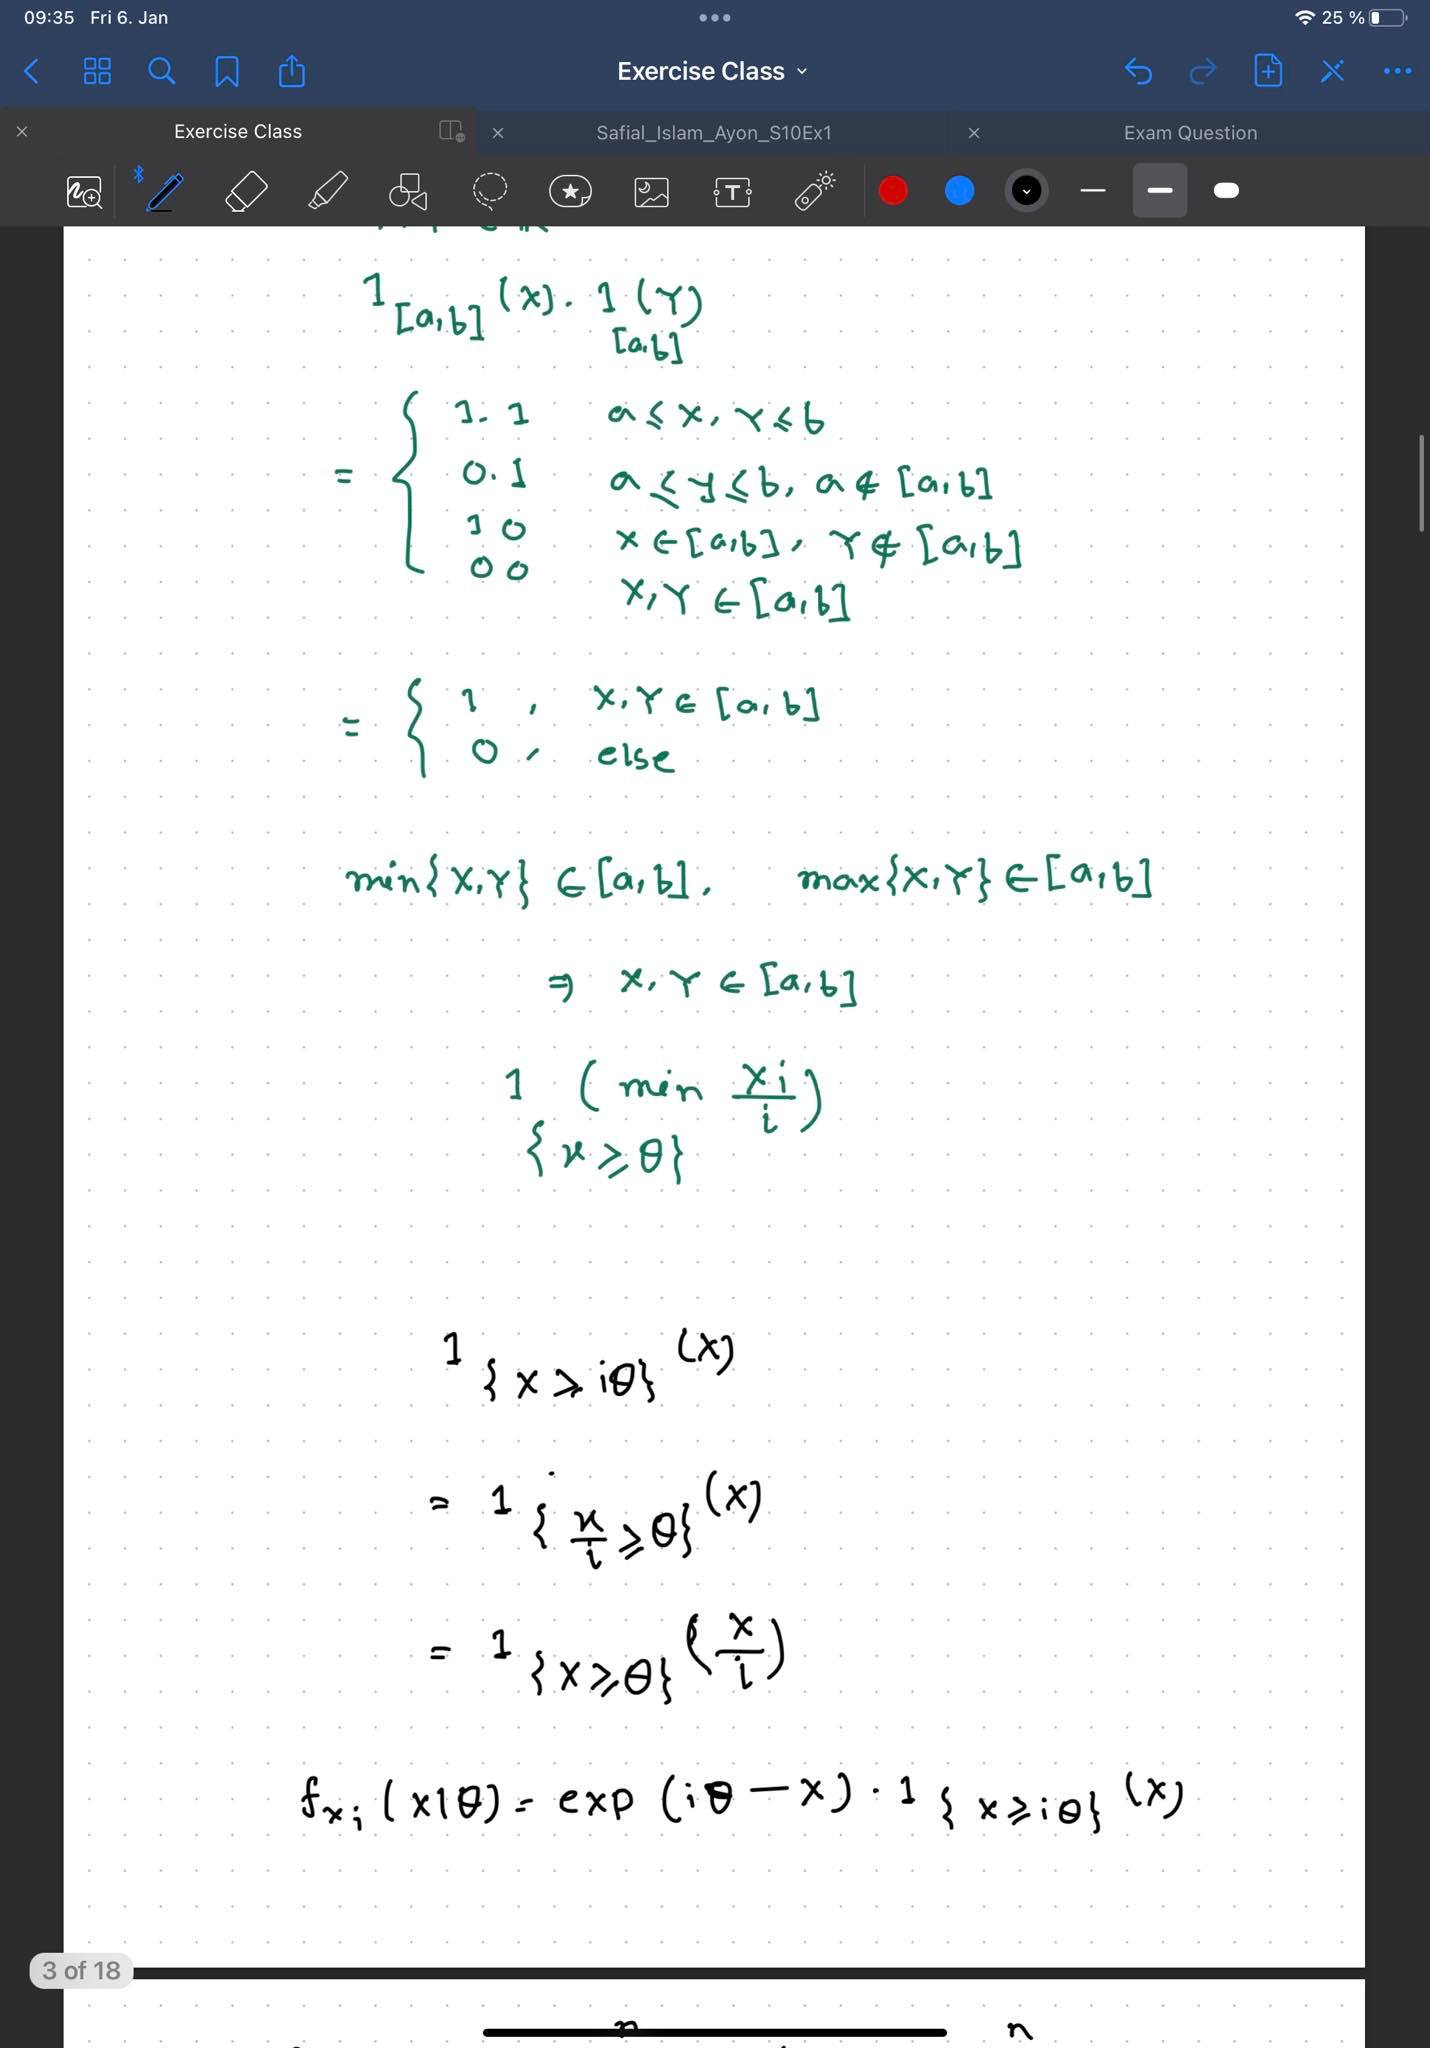 09:35 Fri 6. Jan
25 %
Exercise Class
Exercise Class
Safial_Islam_Ayon_S10Ex1
Exam Question
1_{[a,b]} (X) . 1_{[a,b]} (Y)
= { 1. 1 a ≤ x, Y ≤ b
0. 1 a ≤ y ≤ b, a ∉ [a,b]
1 0 x ∈ [a,b], Y ∉ [a,b]
0 0 X,Y ∈ [a,b]
= { 1 , X,Y ∈ [a,b]
0 , else
min{X,Y} ∈ [a,b], max{X,Y} ∈ [a,b]
⇒ X,Y ∈ [a,b]
1_{{x ≥ θ}} (min xi/i)
1_{{x ≥ iθ}} (X)
= 1_{{x/i ≥ θ}} (X)
= 1_{{x ≥ θ}} (x/i)
f_{xi} (x|θ) = exp (iθ − x) . 1_{{x ≥ iθ}} (X)
3 of 18
n n